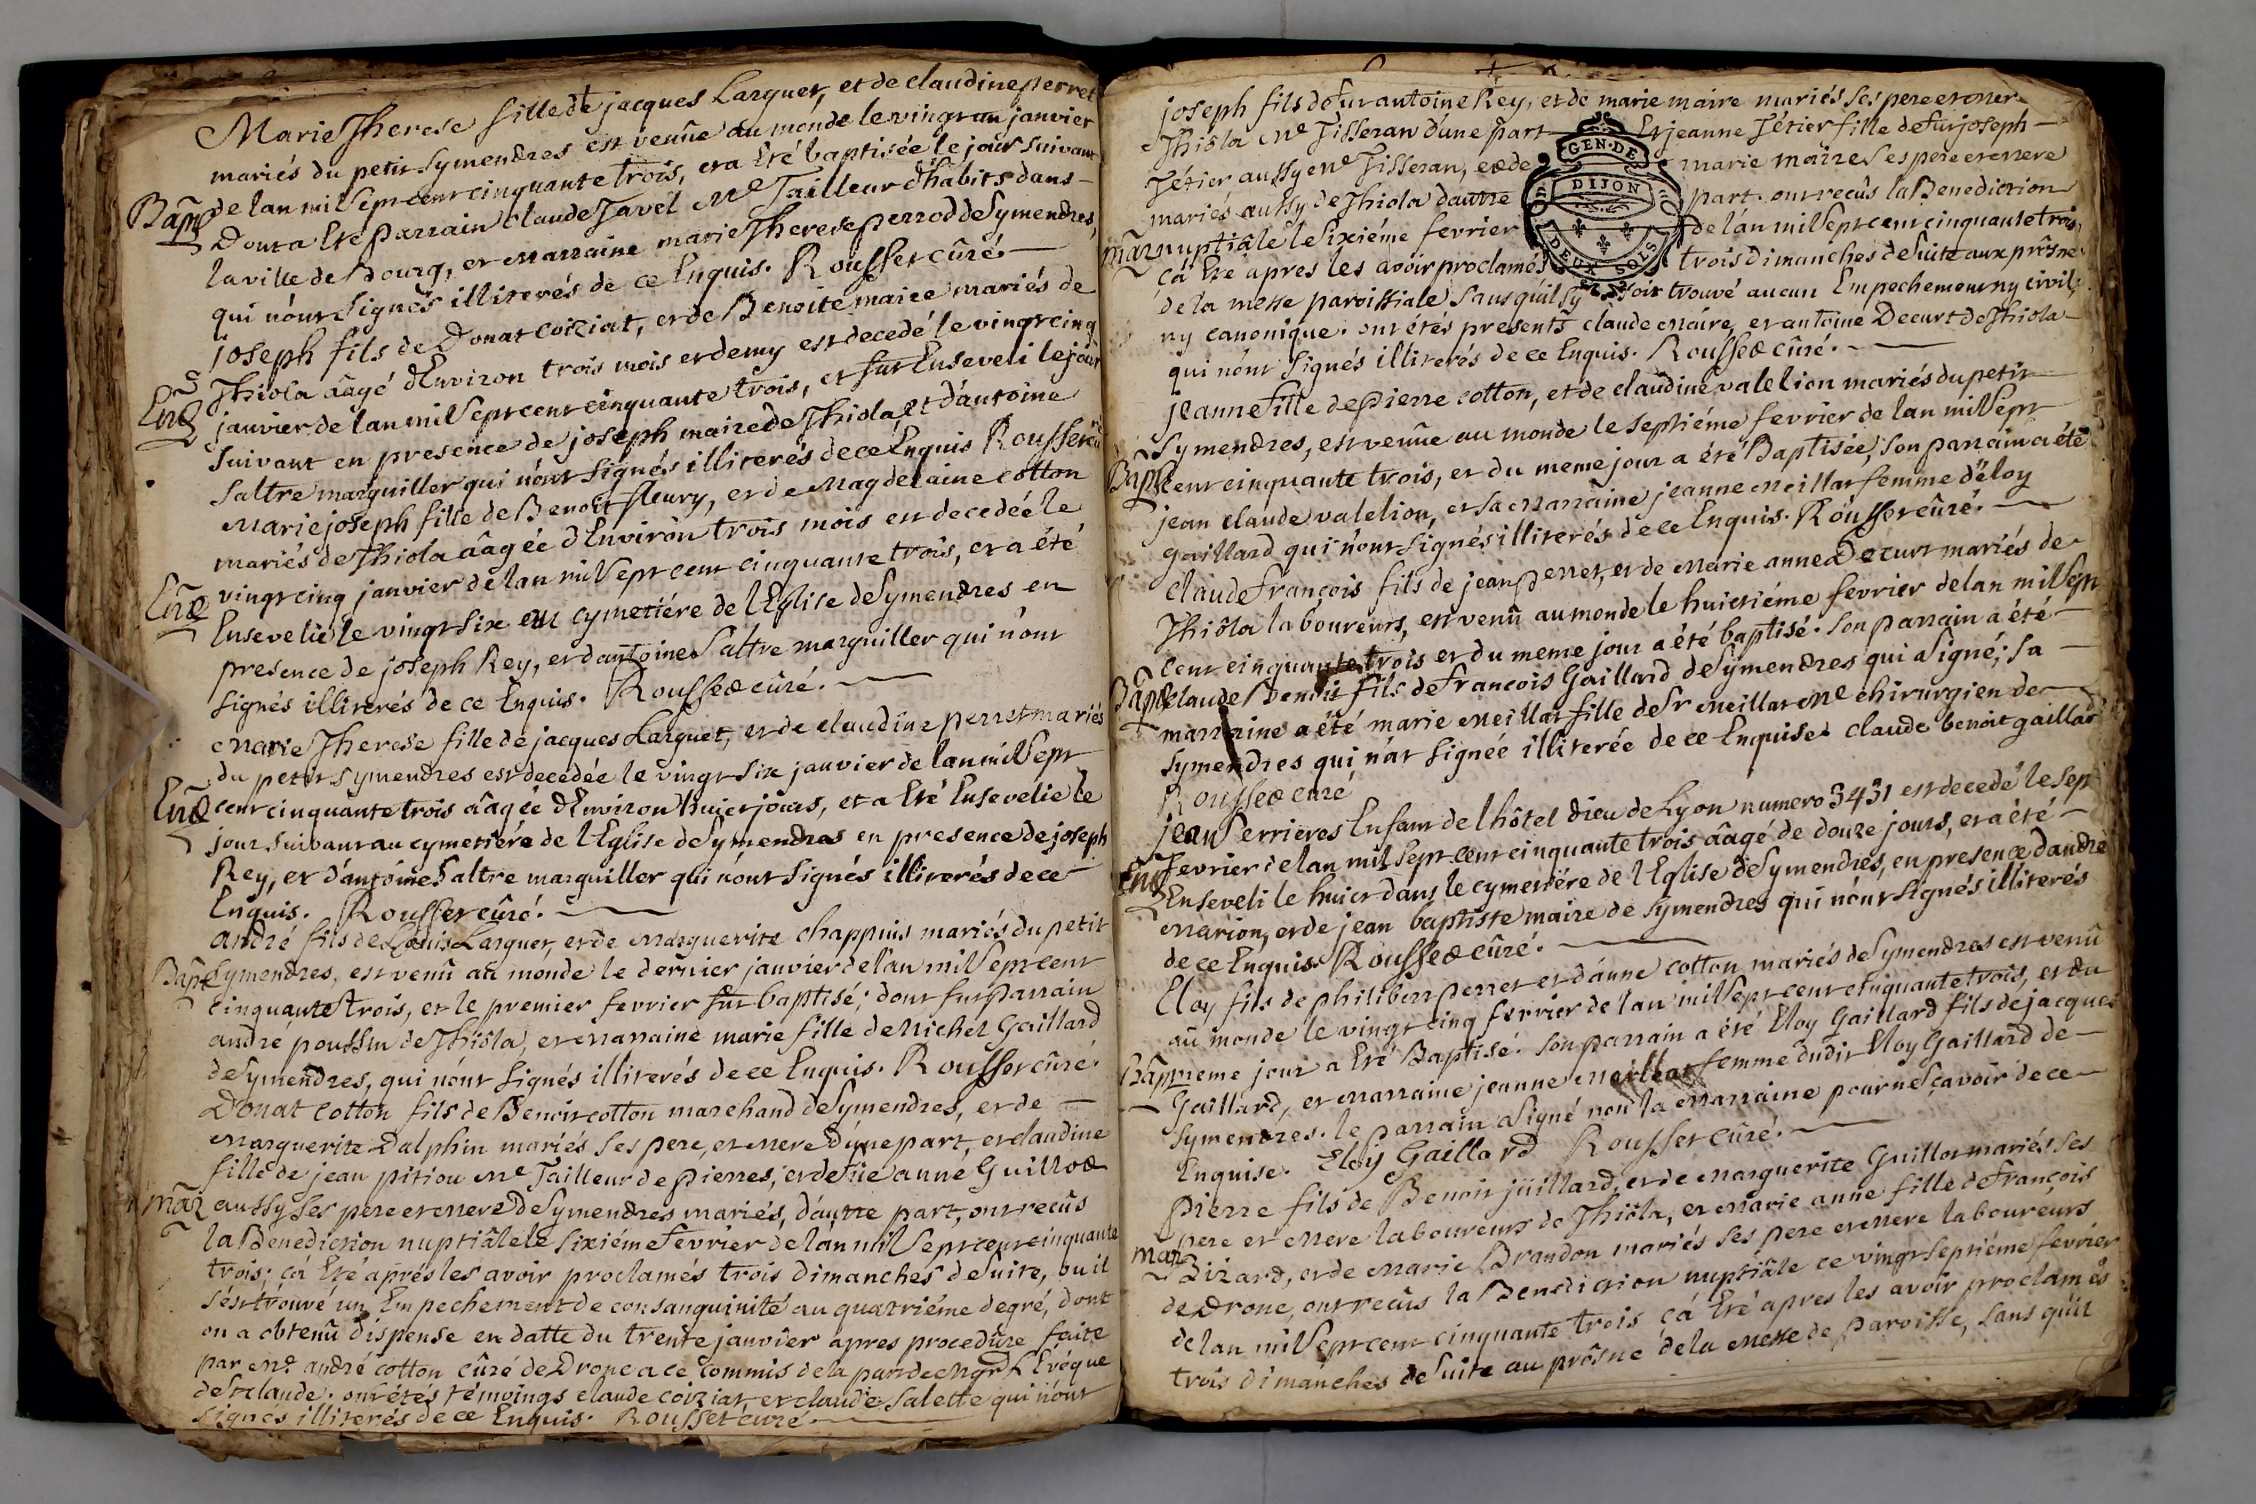 Marie Therese fille de jacques Larguet, et de claudine perret
mariés du petit symendres est venüe au monde le vingt un janvier
de lan mil sept cent cinquante trois, et a Eté baptisée le jour suivant
Bap̃
Dont a Eté parrain claude Tavel Me Tailleur d'habits dans
la ville de Bourg, et marraine marie Therese perrod de Symendres,
qui n'ont signés illiterés de ce Enquis. Rousset cûré.
joseph fils de Donat coiziat, et de Benoite maire mariés de
Thiola âagé d'Environ trois mois et demy est decedé le vingt cinq
Ens̃
janvier de lan mil sept cent cinquante trois, et fut Enseveli le jour
suivant en presence de joseph maire de Thiola, et d'antoine
saltre marguiller qui n'ont signés illiterés de ce Enquis Rousset cu
Marie joseph fille de Benoit fleury, et de Magdelaine cotton
mariés de Thiola âagée d'Environ trois mois est decedée le
vingt cinq janvier de lan mil sept cent cinquante trois, et a été
Ens̃
Ensevelie le vingt six au cymetiére de l'Eglise de Symendres en
presence de joseph Rey, et dantoine saltre marguiller qui n'ont
signés illiterés de ce Enquis. Rousset cûré.
Marie Therese fille de jacques Larguet, et de claudine perret mariés
du petit symendres est decedée le vingt six janvier de lan mil sept
Ens̃
cent cinquante trois âagée d'Environ huict jours, et a Eté Ensevelie le
jour suivant au cymetiére de l'Eglise de Symendres en presence de joseph
Rey, et d'antoine saltre marguiller qui n'ont signés illiterés de ce
Enquis. Rousset cûré.
andré fils de Loüis Larguet, et de Marguerite chappuis mariés du petit
Bap̃
symendres, est venû au monde le dernier janvier de lan mil sept cent
cinquante trois, et le premier fevrier fut baptisé; dont fut parrain
andré poussin de Thiola, et Marraine marie fille de Michel Gaillard
de Symendres, qui n'ont signés illiterés de ce Enquis. Rousset cûré.
Donat cotton fils de Benoit cotton marchand de Symendres, et de
Marguerite Dalphin mariés ses pere, et Mere d'une part, et claudine
fille de jean pitiou Me Tailleur de pierres, et de füe anne Guillot
mar̃
aussy ses pere et mere de Symendres mariés, d'autre part, ont recûs
la Benediction nuptiâle le sixiéme fevrier de lan mil sept cent cinquante
trois; ça Eté aprés les avoir proclamés trois dimanches de suite, ou il
s'est trouvé un Empechement de consanguinité au quatriéme degré, dont
on a obtenû dispense en datte du trente janvier apres procedûre faite
par Me andré cotton cûré de Drone a ce commis de la part de Mgr L'Evéque
de St claude. ont étés témoings claude coiziat, et claude salette qui n'ont
signés illiterés de ce Enquis. Rousset curé.
joseph fils de fut antoine Rey, et de marie maire mariés ses pere et mere
Thiôla Me Tisseran d'une part Et jeanne Tétier fille de fut joseph
Tétier aussy Me Tisseran, et de marie maire ses pere et mere
mariés aussy de Thiola d'autre part. ont recûs la Benediction
mar̃
nuptiâle le sixiéme fevrier de lán mil sept cent cinquante trois
çá Eté apres les avoir proclamés trois dimanches de suite aux prosne
de la messe paroissiale sans quil sy soit trouvé aucun Empechement ny civil,
ny canonique. ont étés presents claude Maire, et antoine Decurt de Thiola
qui n'ont signés illiterés de ce Enquis. Rousset cûré.
GEN. DE
DIJON
DEUX SOLS
jeanne fille de pierre cotton, et de claudine valelion mariés du petit
Symendres, est venüe au monde le septiéme fevrier de lan mil sept
Bap̃
cent cinquante trois, et du meme jour a été Baptisée; son parrain a été
jean claude valelion, et sa marraine jeanne Meillat femme d'éloy
gaillard qui n'ont signés illiterés de ce Enquis. Rousset cûré.
claude françois fils de jean perret, et de Marie anne Decurt mariés de
Thiôla laboureurs, est venû au monde le huictiéme fevrier de lan mil sept
cent cinquante trois et du meme jour a été baptisé. son parrain a été
Bap̃
claude Benoit fils de françois Gaillard de Symendres qui a signé; sa
marraine a été marie Meillat fille de Sr Meillat Me chirurgien de
symendres qui n'at signée illiterée de ce Enquise. claude benoit gaillard
Rousset curé
jean perrieres Enfant de l'hôtel dieu de Lyon numero 3431 est decedé le sept
fevrier de lan mil sept cent cinquante trois âagé de douze jours, et a été
Ens̃
Enseveli le huict dans le cymetiére de l'Eglise de Symendres, en presence d'andre
Marion, et de jean baptiste maire de Symendres qui n'ont signés illiterés
de ce Enquis. Rousset cûré.
Eloy fils de philibert perret et d'anne cotton mariés de Symendres est venû
au monde le vingt cinq fevrier de lan mil sept cent cinquante trois, et du
Bap̃
meme jour a Eté Baptisé. son parrain a été Eloy Gaillard fils de jacques
Gaillard, et Marraine jeanne Meillat femme dudit Eloy Gaillard de
symendres. le parrain a signé non la Marraine pour ne sçavoir de ce
Enquise. Eloy Gaillard Rousset cûré.
pierre fils de Benoit juillard, et de Marguerite Guillot mariés ses
pere et Mere laboureurs de Thiôla, et Marie anne fille de françois
mar̃
Bizard, et de Marie Brandon mariés ses pere et mere laboureurs
de Drone, ont recûs la Benediction nuptiâle ce vingt septiéme fevrier
de lan mil sept cent cinquante trois çá Eté apres les avoir proclamés
trois dimanches de suite au prosne de la Messe de paroisse, sans qu'il